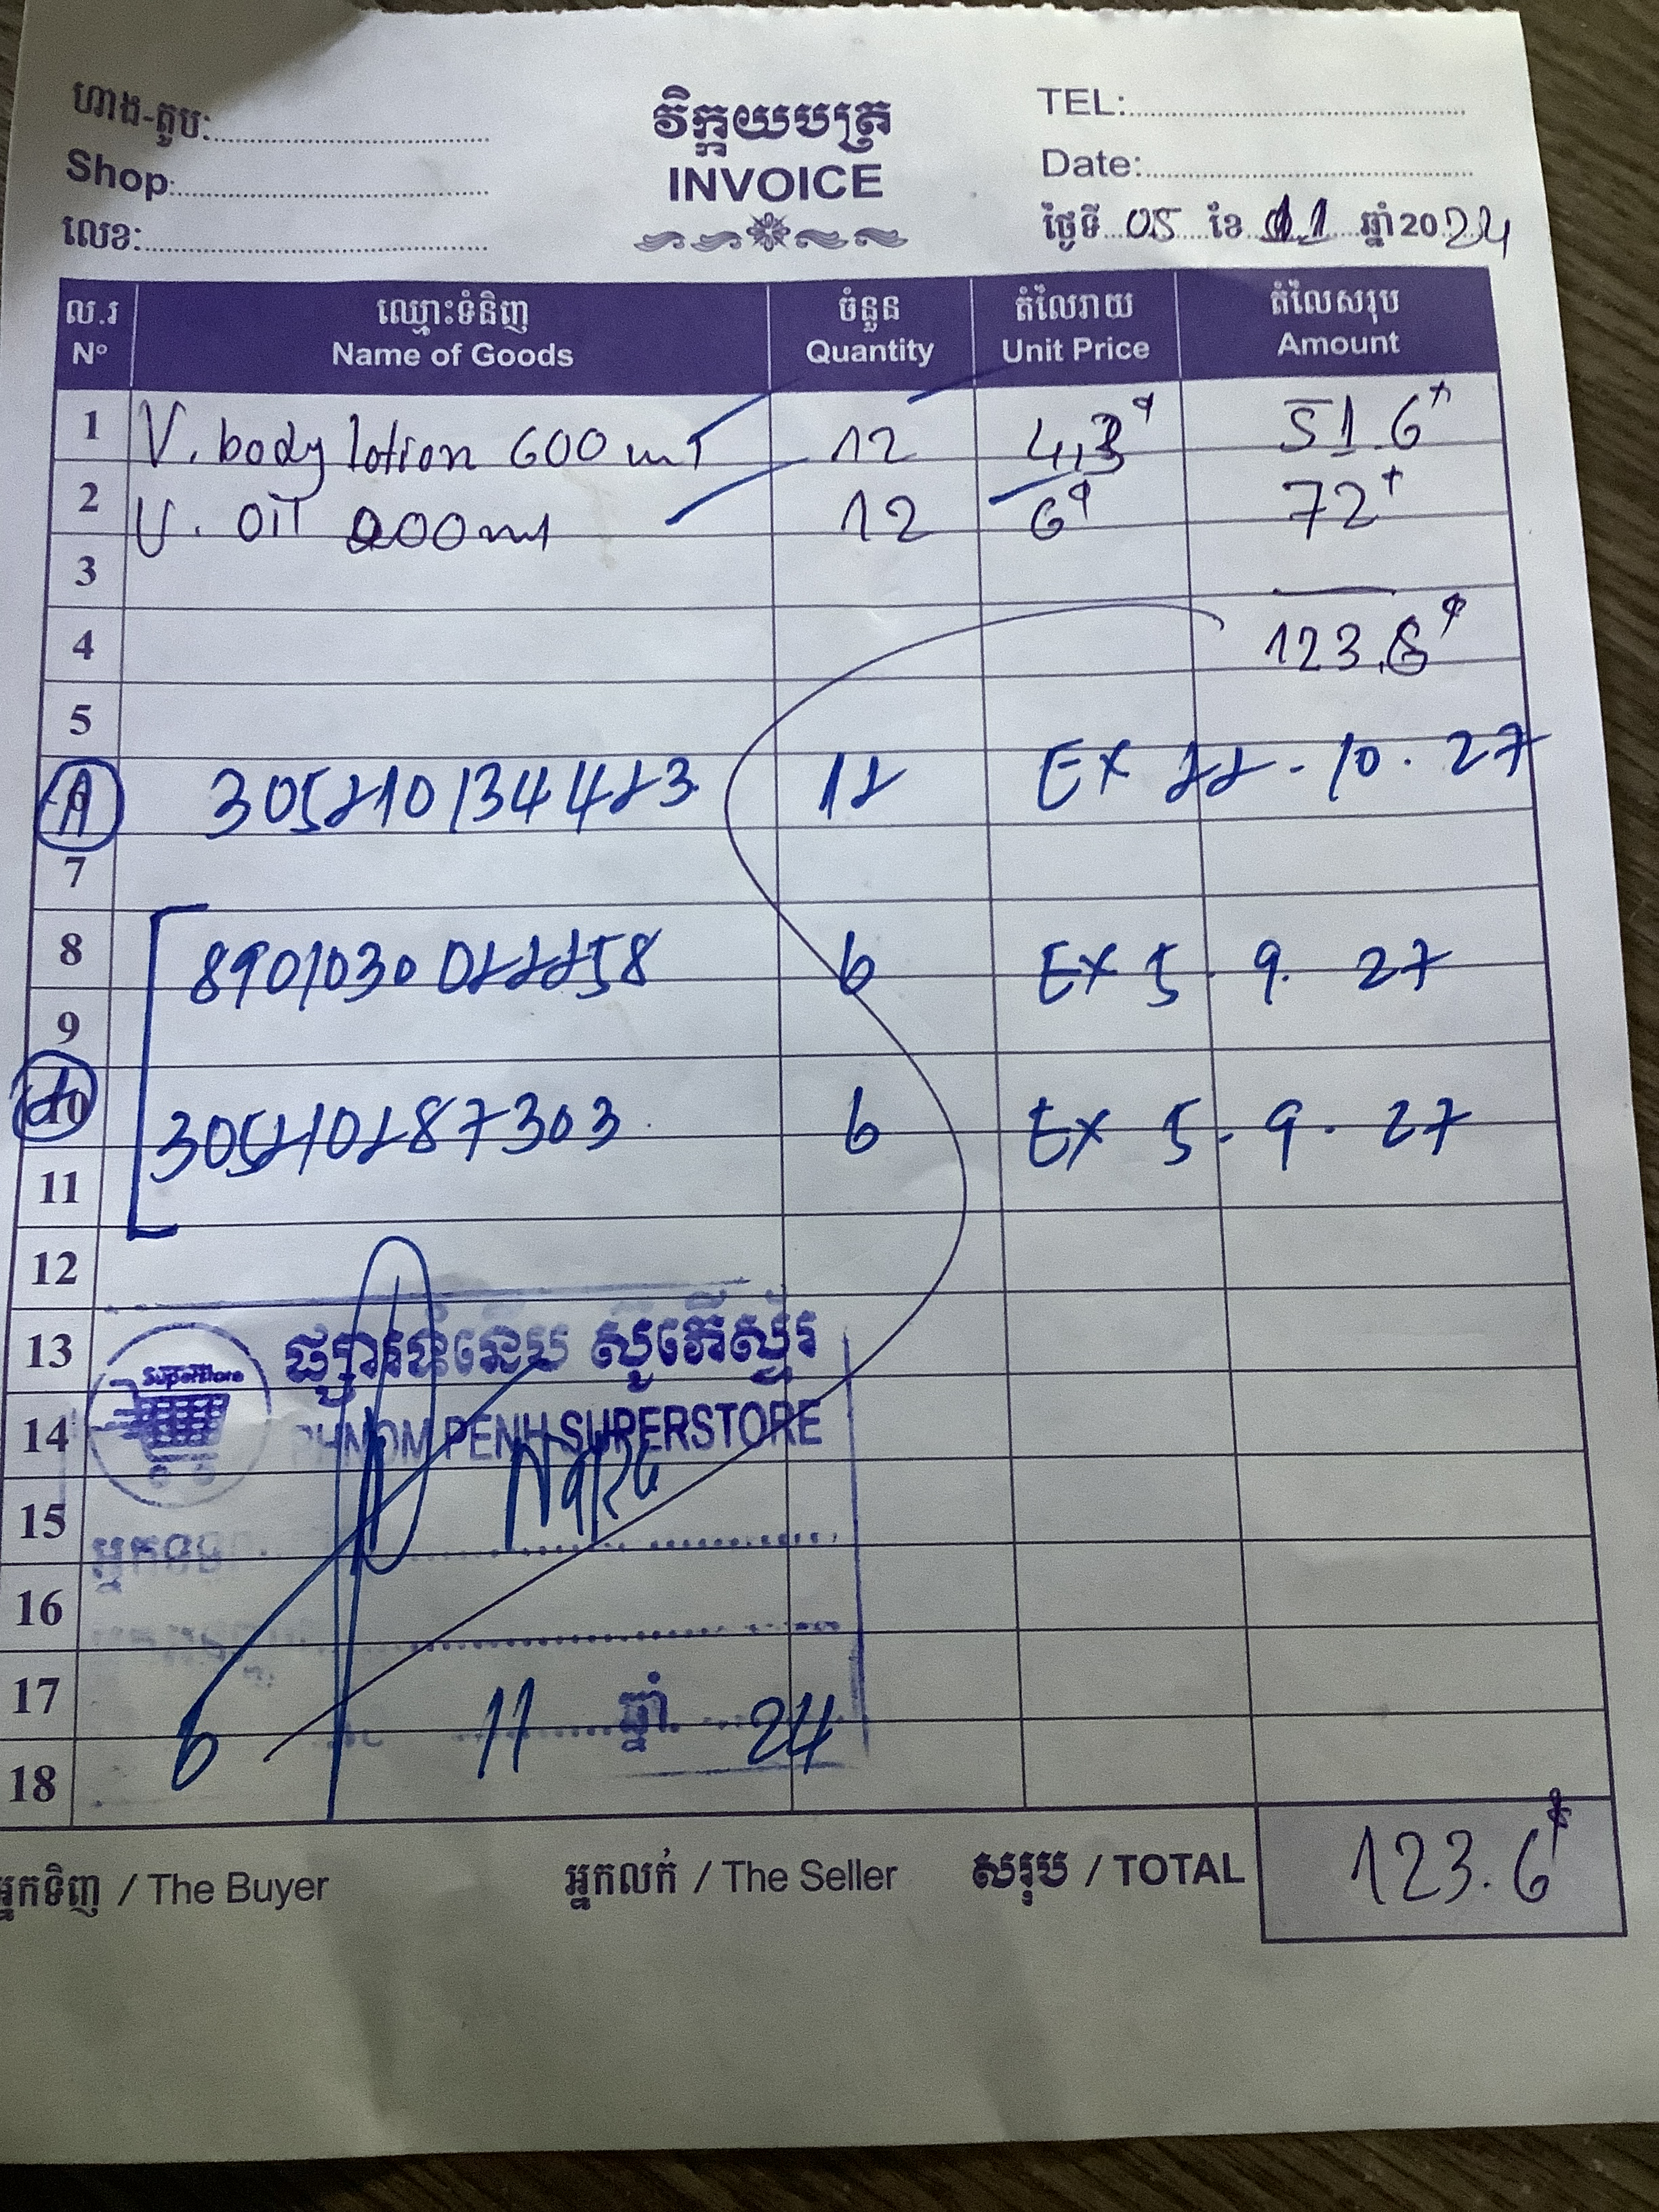 ហាង-តូប:
Shop:
លេខ:
វិក្កយបត្រ
INVOICE
TEL:
Date:
ថ្ងៃទី 05 ខែ 11 ឆ្នាំ 2024
ល.រ ឈ្មោះទំនិញ ចំនួន តំលៃរាយ តំលៃសរុប
Nº Name of Goods Quantity Unit Price Amount
1 V. body lotion 600 ml 12 4,3$ 51.6$
2 V. oil 200ml 12 6$ 72$
3
4 123,6$
5
A 305210134423 12 EX 22-10.27
7
8 8901030022258 6 EX 5.9.27
9
10 305210287303 6 EX 5.9.27
11
12
13 ផ្សារទំនើប ស៊ូភើស្ទ័រ
SuperStore
14 PHNOM PENH SUPERSTORE
15 អ្នកទទួល
16
17 6 11 ឆ្នាំ 24
18
អ្នកទិញ / The Buyer អ្នកលក់ / The Seller សរុប / TOTAL 123.6$